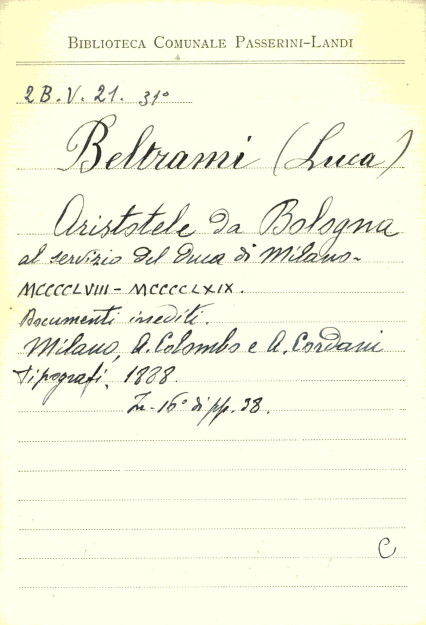 BIBLIOTECA COMUNALE PASSERINI-LANDI
2B.V.21. 31º
Beltrami (Luca)
Aristotele da Bologna
al servizio del Duca di Milano-
MCCCCLVIII - MCCCCLXIX.
Documenti inediti.
Milano, A. Colombo e A. Cordani
tipografi, 1888.
In-16º di pp. 38.
C